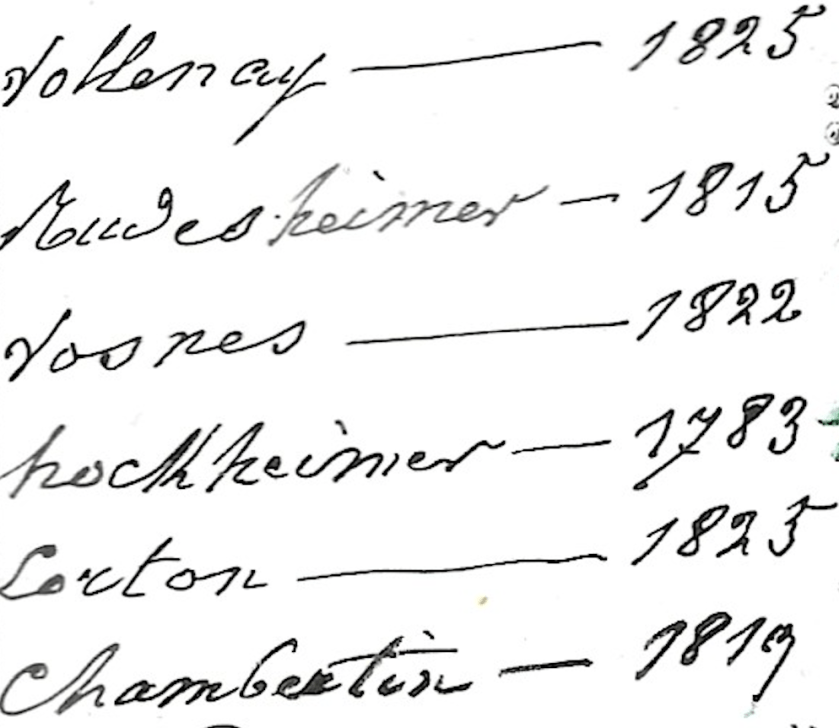 Vollenay — 1825
Rudesheimer — 1815
Vosnes — 1822
hockheimer — 1783
Corton — 1825
Chambertin — 1819